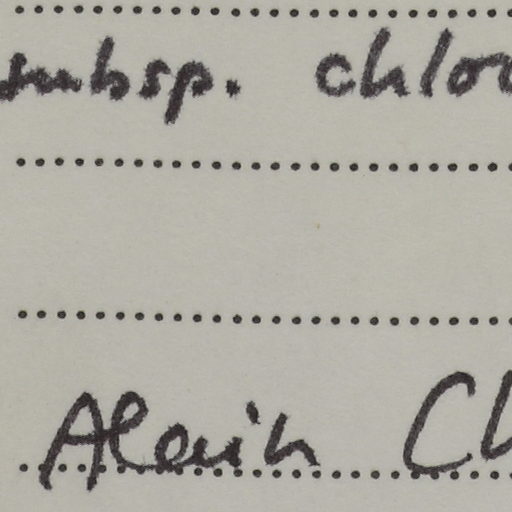 subsp. chloro
Alain Ch